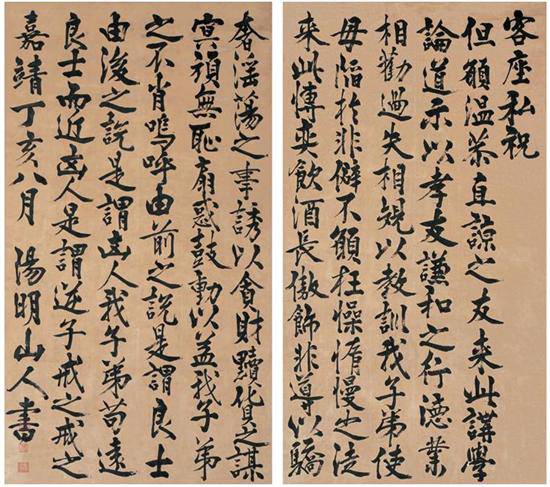 客座私祝
但願溫恭直諒之友來此講學
論道示以孝友謙和之行德業
相勸過失相規以教訓我子弟使
毋陷於非僻不願狂懆惰慢之徒
來此博奕飲酒長傲飾非導以驕
奢淫蕩之事誘以貪財黷貨之謀
冥頑無恥扇惑鼓動以益我子弟
之不肖嗚呼由前之說是謂良士
由後之說是謂凶人我子弟苟遠
良士而近凶人是謂逆子戒之戒之
嘉靖丁亥八月 陽明山人書